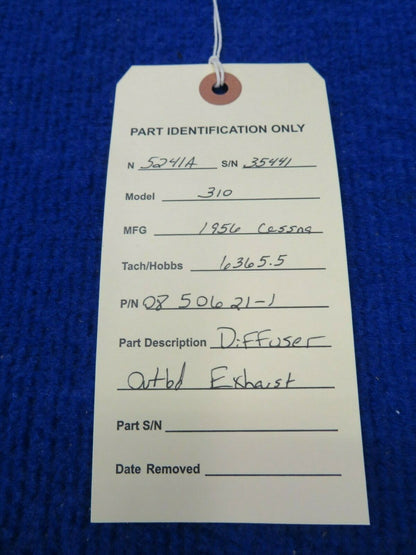 PART IDENTIFICATION ONLY
N 5241A S/N 35441
Model 310
MFG 1956 Cessna
Tach/Hobbs 6365.5
P/N 0850621-1
Part Description Diffuser
Outbd Exhaust
Part S/N
Date Removed